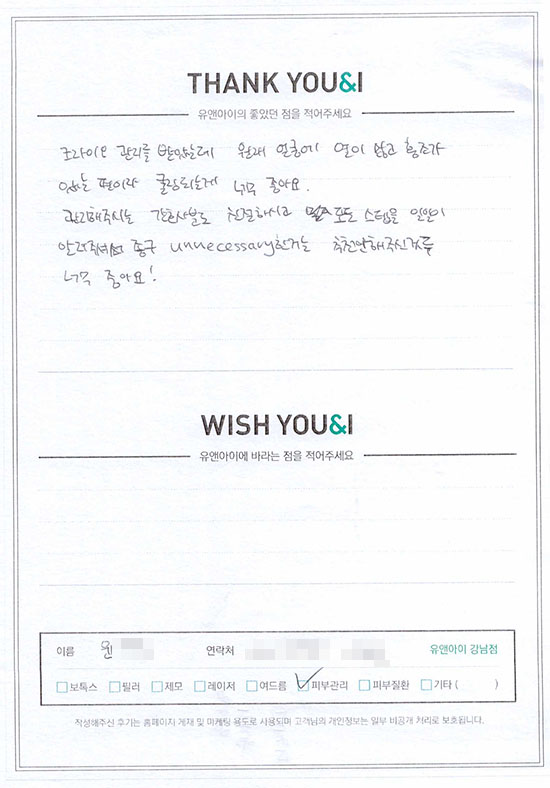 THANK YOU&I
유앤아이의 좋았던 점을 적어주세요
크라이오 관리를 받았는데 원래 얼굴에 열이 많고 홍조가
있는 편이라 쿨링되는게 너무 좋아요.
관리해주시는 간호사분도 친절하시고 모든 스텝을 일일이
알려주셔서 좋구 unnecessary한거는 추천안해주신것두
너무 좋아요!
WISH YOU&I
유앤아이에 바라는 점을 적어주세요
이름 원 연락처 유앤아이 강남점
보톡스 필러 제모 레이저 여드름 피부관리 피부질환 기타 ( )
작성해주신 후기는 홈페이지 게재 및 마케팅 용도로 사용되며 고객님의 개인정보는 일부 비공개 처리로 보호됩니다.